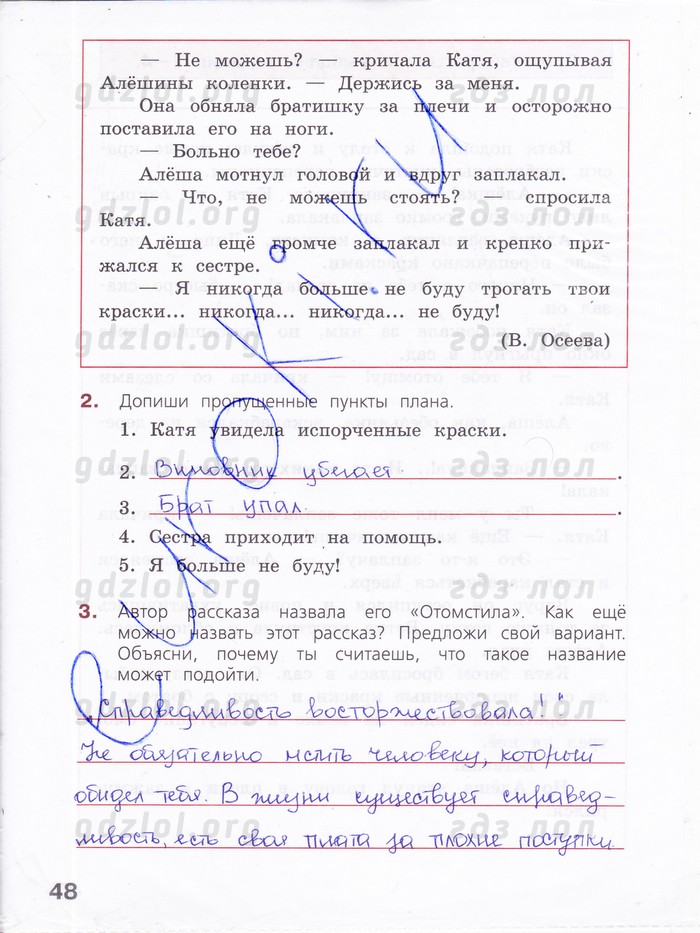 — Не можешь? — кричала Катя, ощупывая
Алёшины коленки. — Держись за меня.
gdzlol.org гдз лол
Она обняла братишку за плечи и осторожно
поставила его на ноги.
— Больно тебе?
Алёша мотнул головой и вдруг заплакал.
— Что, не можешь стоять? — спросила
gdzlol.org гдз лол
Катя.
Алёша ещё громче заплакал и крепко при-
жался к сестре.
— Я никогда больше не буду трогать твои
краски... никогда... никогда... не буду!
gdzlol.org гдз лол
(В. Осеева)
2. Допиши пропущенные пункты плана.
1. Катя увидела испорченные краски.
gdzlol.org гдз лол
2. Виновник убегает.
3. Брат упал.
4. Сестра приходит на помощь.
5. Я больше не буду!
gdzlol.org гдз лол
3. Автор рассказа назвала его «Отомстила». Как ещё
можно назвать этот рассказ? Предложи свой вариант.
Объясни, почему ты считаешь, что такое название
может подойти.
gdzlol.org гдз лол
„Справедливость восторжествовала!"
Не обязательно мстить человеку, который
обидел тебя. В жизни существует справед-
gdzlol.org гдз лол
ливость, есть своя плата за плохие поступки.
48